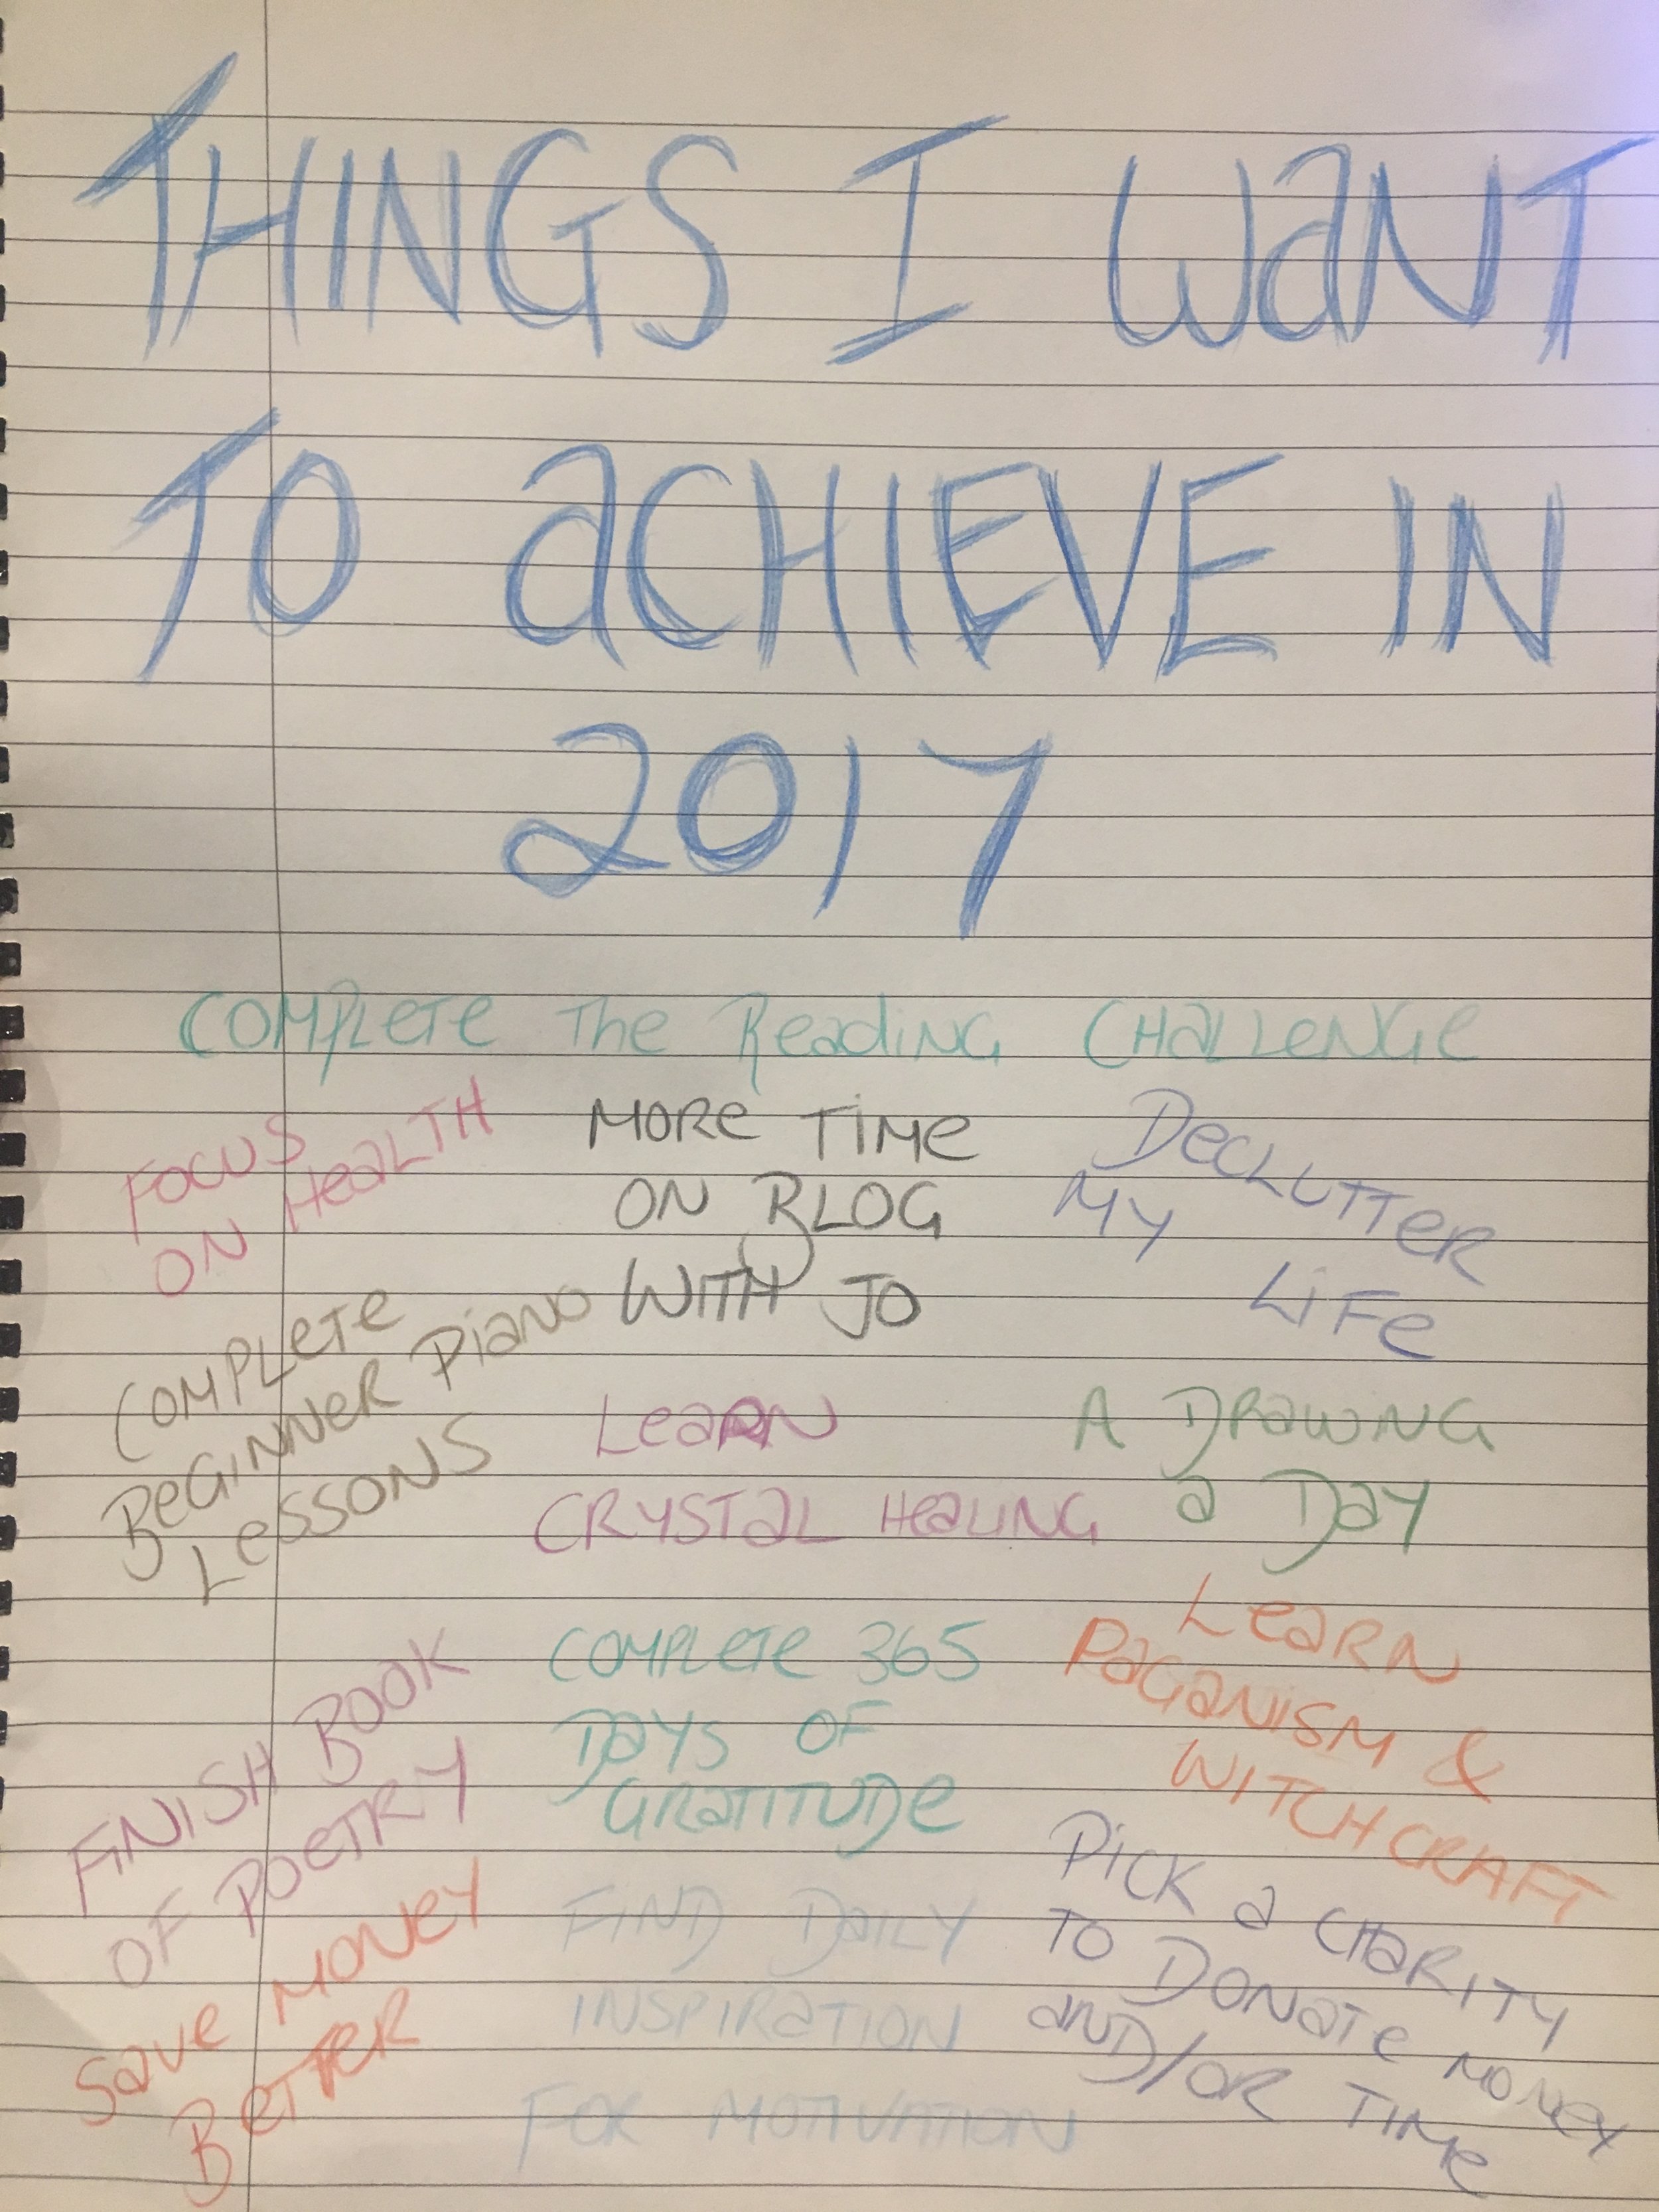 THINGS I WaNT
TO aCHIEVE IN
2017
COMPLeTe The ReadiNG CHaLLeNGe
FOCUS
ON HeaLTH
MORe TiMe
ON BLOG
WITH JO
DeCLUTTeR
MY
LiFe
COMPLeTe
BeGiNNeR PiaNO
LeSSONS
LeaRN
CRYSTaL HeaLING
A DRaWNG
a Day
FINISH BOOK
OF POeTRY
COMPLeTe 365
Days OF
GRaTITUDe
LeaRN
PaGaNISM &
WITCHCRAFT
Save MONey
BeTTeR
FIND DaiLY
INSPIRaTION
FOR MOTIVATION
PiCK a CHaRITY
TO DONaTe MONeY
aND/OR TiMe